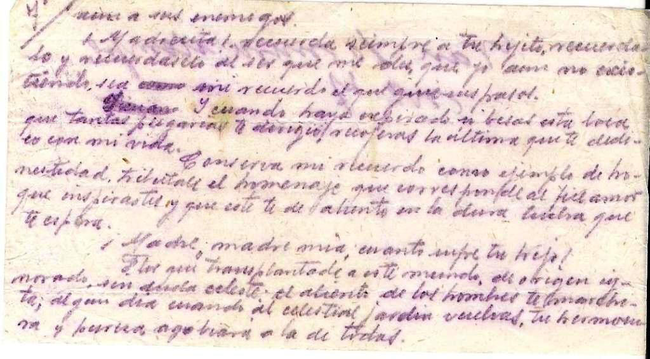 aun a sus enemigos.
¡Madrecita!, recuerda siempre a tu hijito, recuerda-
lo y recuerdaselo al ser que me dio, que yo aun no exis-
tiendo, sea mi recuerdo el que guie sus pasos.
Y cuando haya expirado si besas esta boca
que tantas plegarias te dirigio, recojeras la última que te dedi-
co con mi vida.
Conserva mi recuerdo como ejemplo de ho-
nestidad, tributale el homenaje que corresponde al fiel amor
que inspiraste y que este te de aliento en la dura lucha que
te espera.
¡Madre, madre mia, cuanto sufre tu hijo!
Flor que transplantada a este mundo, de origen ig-
norado, sin duda celeste; el aliento de los hombres te marchi-
ta; algun dia cuando al celestial jardin vuelvas, tu hermosu-
ra y pureza agobiara a la de todas.